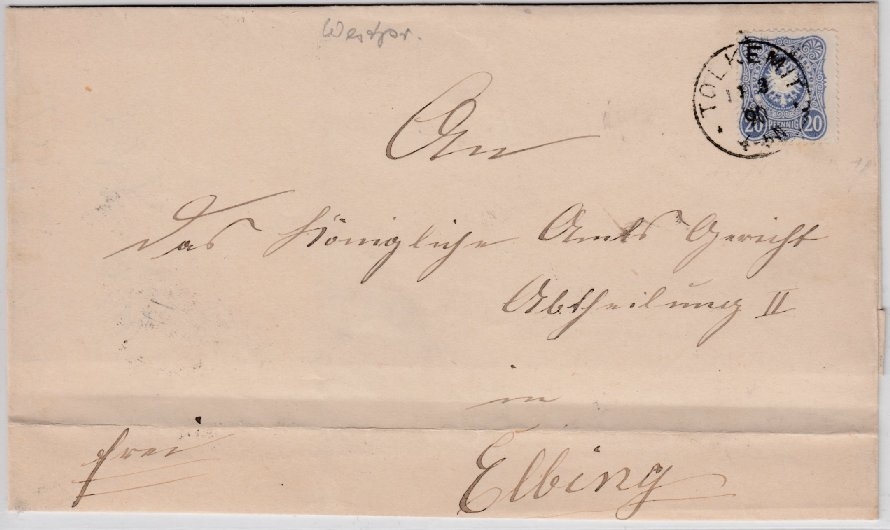 Westpr.
TOLKEMIT
11 3
90
4-5N
20 PFENNIG 20
An
das Königliche Amts Gericht
Abtheilung II
in
Elbing
frei